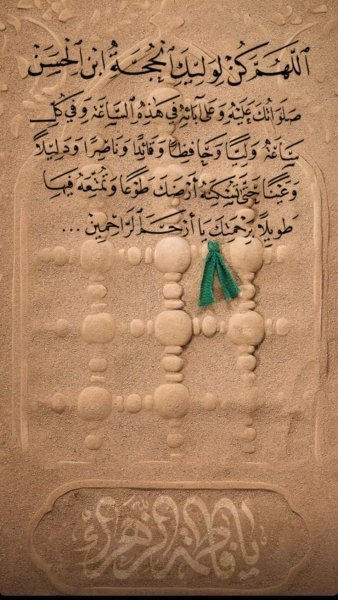 اللّهُمَّ كُنْ لِوَلِيِّكَ الْحُجَّةِ ابْنِ الْحَسَنِ
صَلَواتُكَ عَلَيْهِ وَعَلى آبائِهِ في هذِهِ السّاعَةِ وَفي كُلِّ
ساعَةٍ وَلِيّاً وَحافِظاً وَقائِداً وَناصِراً وَدَليلاً
وَعَيْناً حَتّى تُسْكِنَهُ أَرْضَكَ طَوْعاً وَتُمَتِّعَهُ فيها
طَويلاً بِرَحْمَتِكَ يا أَرْحَمَ الرّاحِمينَ ...
يا فاطمة الزهراء